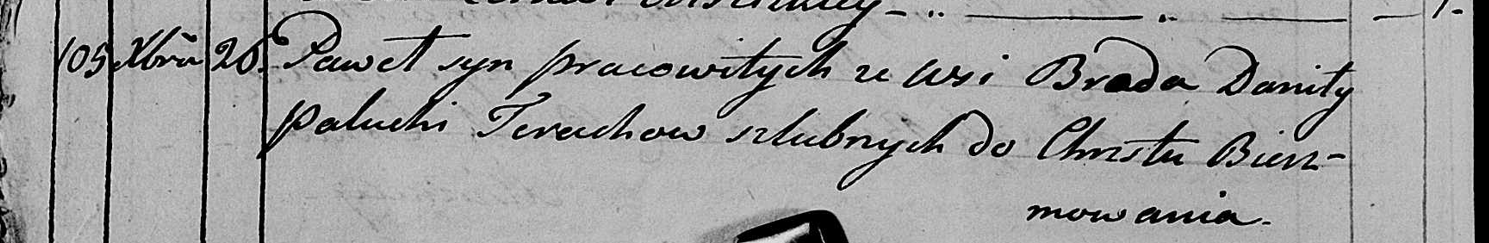 105 Xbra 26. Paweł syn pracowitych ze wsi Broda Daniły
Paluchi Terechow szlubnych do Chrztu Bierz-
mowania.